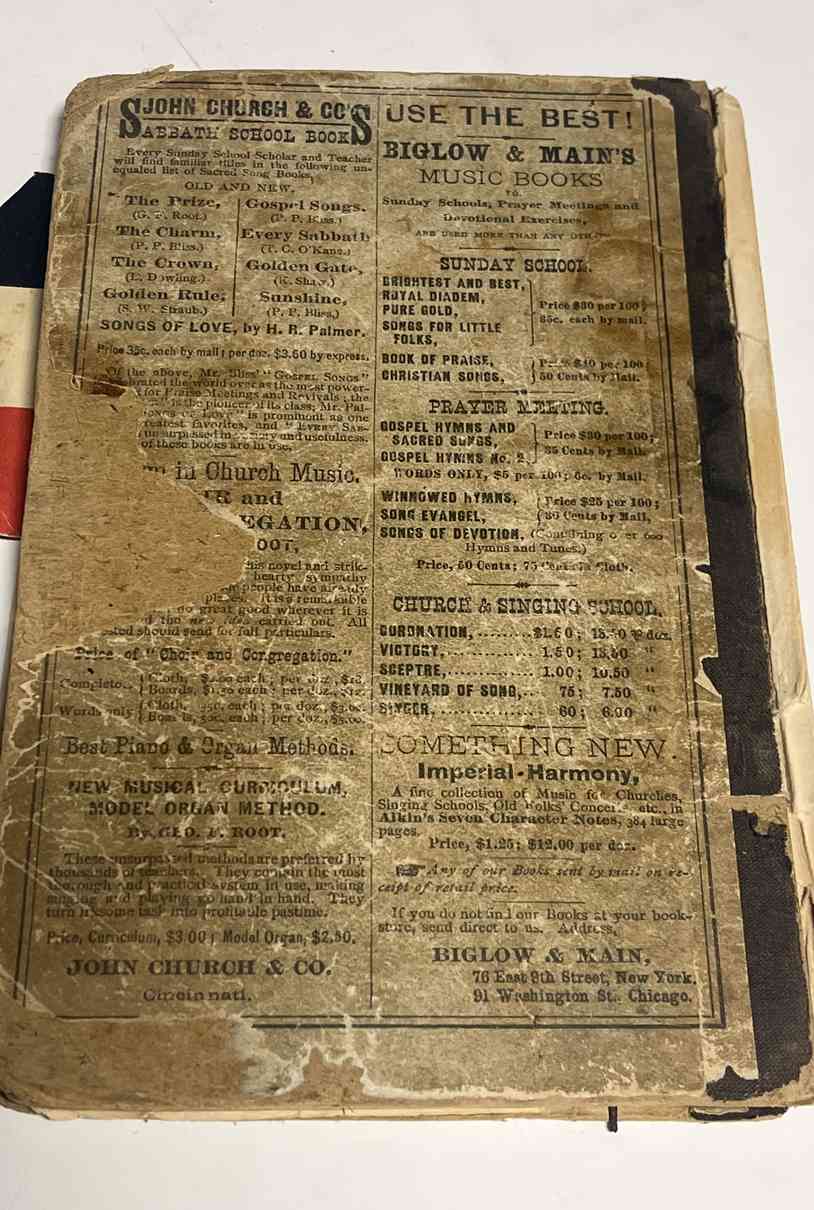 JOHN CHURCH & CO'S
SABBATH SCHOOL BOOKS
Every Sunday School Scholar and Teacher
will find familiar titles in the following un-
equaled list of Sacred Song Books,
OLD AND NEW.
The Prize,
(G. F. Root.)
The Charm,
(P. P. Bliss.)
The Crown,
(L. Dowling.)
Golden Rule,
(S. W. Straub.)
Gospel Songs.
(P. P. Bliss.)
Every Sabbath
(T. C. O'Kane.)
Golden Gate,
(K. Shaw.)
Sunshine,
(P. P. Bliss.)
SONGS OF LOVE, by H. R. Palmer.
Price 35c. each by mail; per doz. $3.60 by express.
Of the above, Mr. Bliss' "GOSPEL SONGS"
the world over as the most power-
for Praise Meetings and Revivals; the
is the pioneer of its class; Mr. Pal-
is prominent as one
favorites, and "EVERY SAB-
unsurpassed in and usefulness.
of these books are in use.
in Church Music.
and
EGATION,
OOT,
his novel and strik-
hearty sympathy
people have already
It is a remarkable
do great good wherever it is
the new idea carried out. All
should send for full particulars.
Price of "Choir and Congregation."
Complete, Cloth, each; per doz.,
Boards, $1.50 each; per doz.,
Words only Cloth, each; per doz.,
Boards, 50c. each; per doz., $5.00.
Best Piano & Organ Methods.
NEW MUSICAL CURRICULUM,
MODEL ORGAN METHOD.
By GEO. F. ROOT.
These unsurpassed methods are preferred by
thousands of teachers. They contain the most
thorough and practical system in use, making
singing and playing go hand in hand. They
turn irksome task into profitable pastime.
Price, Curriculum, $3.00; Model Organ, $2.50.
JOHN CHURCH & CO.
Cincinnati.
USE THE BEST!
BIGLOW & MAIN'S
MUSIC BOOKS
TO
Sunday Schools, Prayer Meetings and
Devotional Exercises,
ARE USED MORE THAN ANY OTHER
SUNDAY SCHOOL.
BRIGHTEST AND BEST,
ROYAL DIADEM,
PURE GOLD,
SONGS FOR LITTLE
FOLKS,
Price $30 per 100;
35c. each by mail.
BOOK OF PRAISE,
CHRISTIAN SONGS,
Price $40 per 100;
50 Cents by Mail.
PRAYER MEETING.
GOSPEL HYMNS AND
SACRED SONGS,
GOSPEL HYMNS No. 2,
Price $30 per 100;
35 Cents by Mail.
WORDS ONLY, $5 per 100; 6c. by Mail.
WINNOWED HYMNS,
SONG EVANGEL,
Price $25 per 100;
30 Cents by Mail,
SONGS OF DEVOTION, (Containing over 600
Hymns and Tunes.)
Price, 60 Cents; 75 Cents in Cloth.
CHURCH & SINGING SCHOOL.
CORONATION,.........$1.50; 13.50 ℔ doz.
VICTORY,............ 1.50; 13.50 "
SCEPTRE,............ 1.00; 10.50 "
VINEYARD OF SONG,... 75; 7.50 "
SINGER,............. 60; 6.00 "
SOMETHING NEW.
Imperial-Harmony,
A fine collection of Music for Churches,
Singing Schools, Old Folks' Concerts etc., in
Aikin's Seven Character Notes, 384 large
pages.
Price, $1.25; $12.00 per doz.
☞ Any of our Books sent by mail on re-
ceipt of retail price.
If you do not find our Books at your book-
store, send direct to us. Address,
BIGLOW & MAIN,
76 East 9th Street, New York.
91 Washington St., Chicago.